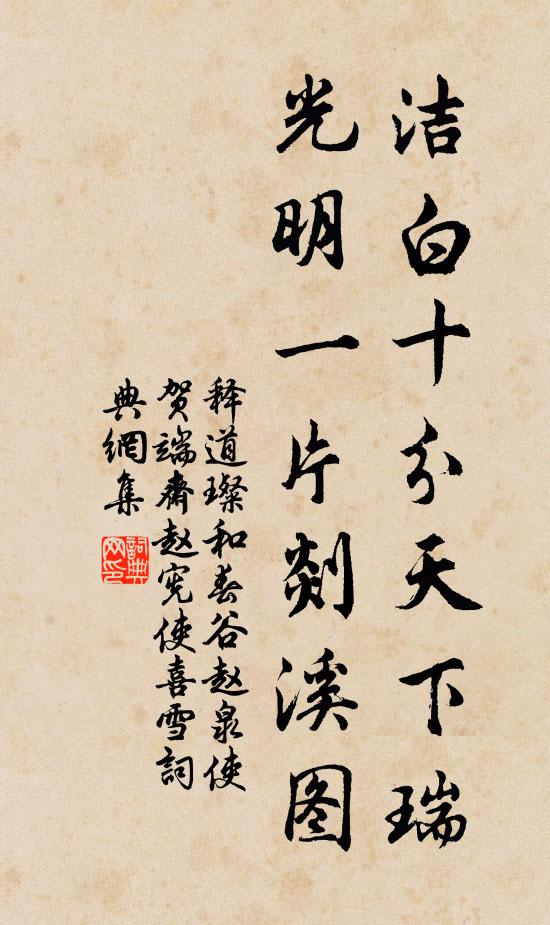 洁白十分天下瑞
光明一片剡溪图
释道璨和春谷赵泉使
贺端齋赵宪使喜雪詞
典網集
詞典網印